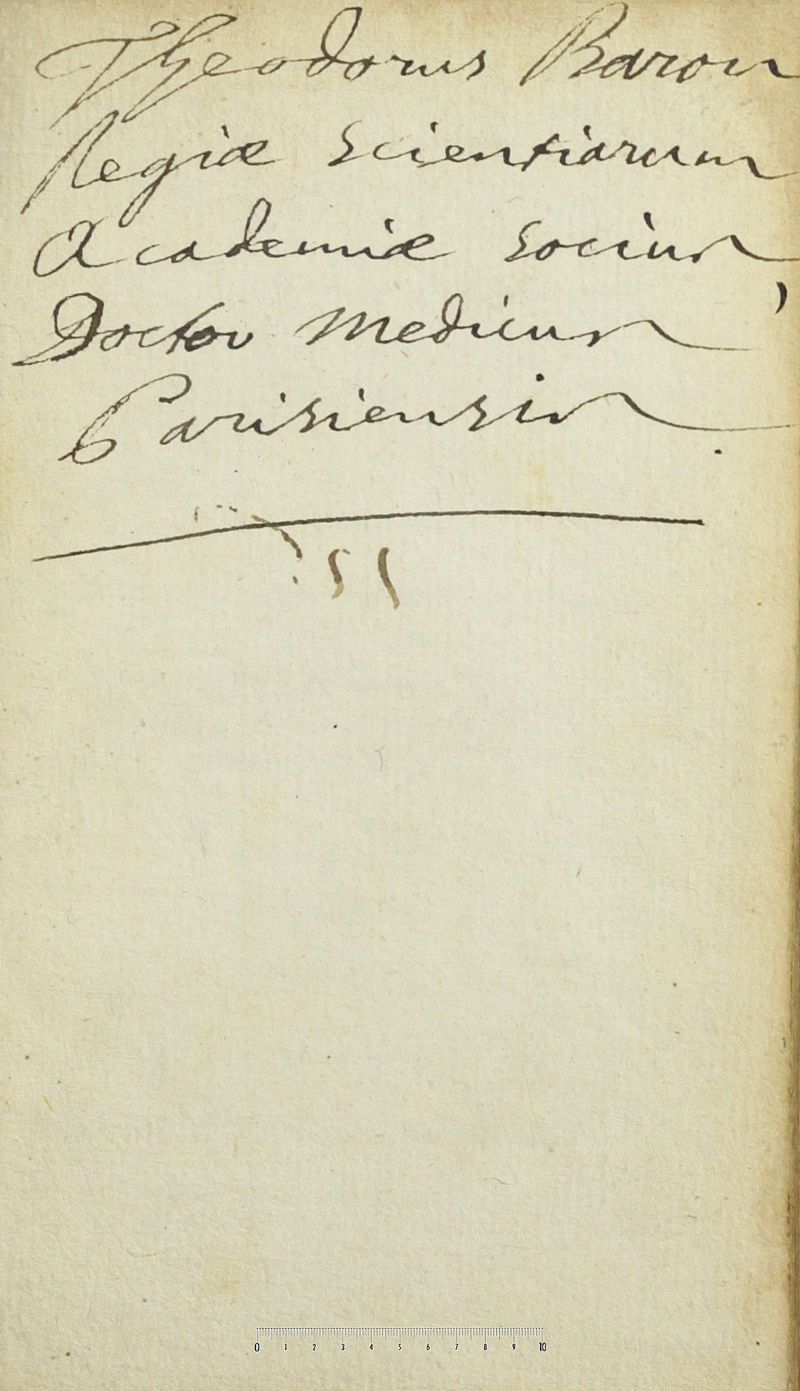 Theodorus Baron
Regiæ scientiarum
Academiæ socius,
Doctor medicus
Parisiensis.
0 1 2 3 4 5 6 7 8 9 10